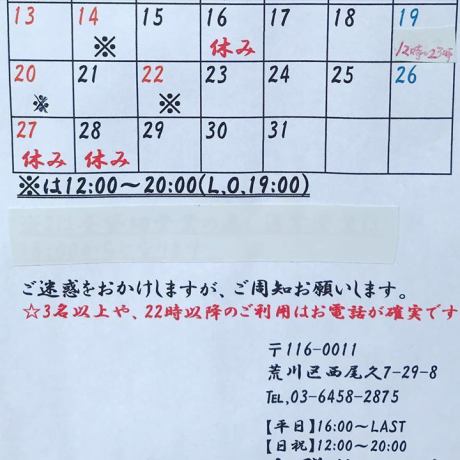 13 14 15 16 17 18 19
※ 休み 12時〜23時
20 21 22 23 24 25 26
※ ※
27 28 29 30 31
休み 休み
※は12:00〜20:00(L.O.19:00)
ご迷惑をおかけしますが、ご周知お願いします。
☆3名以上や、22時以降のご利用はお電話が確実です
〒116-0011
荒川区西尾久7-29-8
TEL,03-6458-2875
【平日】16:00〜LAST
【日祝】12:00〜20:00